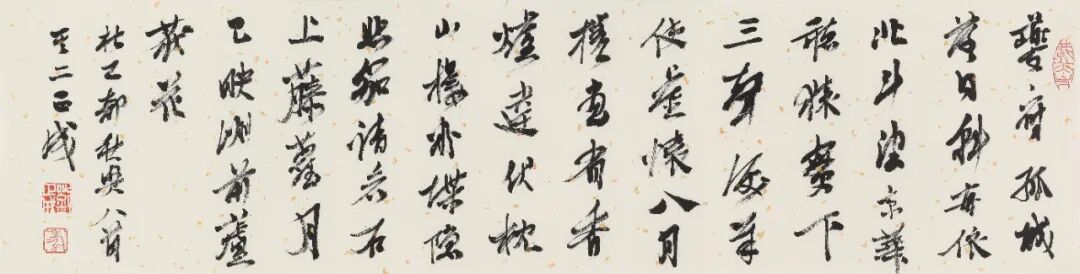 夔府孤城
落日斜每依
北斗望京華
聽猿實下
三聲淚奉
使虛隨八月
槎畫省香
爐違伏枕
山樓粉堞隱
悲笳請看石
上藤蘿月
已映洲前蘆
荻花
杜工部秋興八首
其二正成